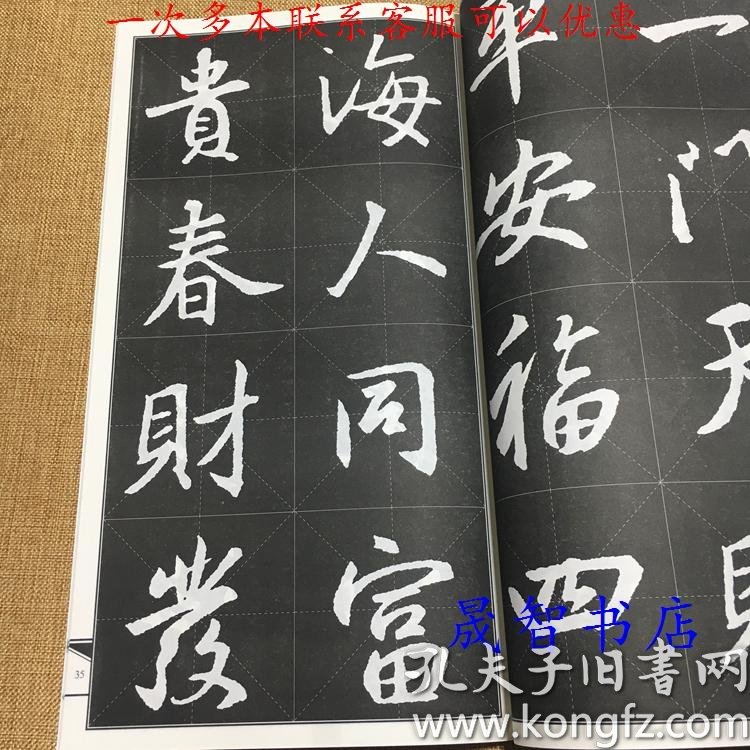 一次多本联系客服可以优惠
一
平安福四
海人同富
貴春財發
35
晟智书店
孔夫子旧书网
www.kongfz.com